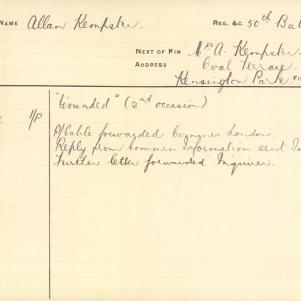 NAME Allan Kempster REG. &C. 50th Bat
NEXT OF KIN Mrs A. Kempster
ADDRESS Oval Terrace
Kensington Park
"Wounded" (2nd occasion)
forwarded London.
Reply from Commis. Information sent
Further letter forwarded Inquirer.